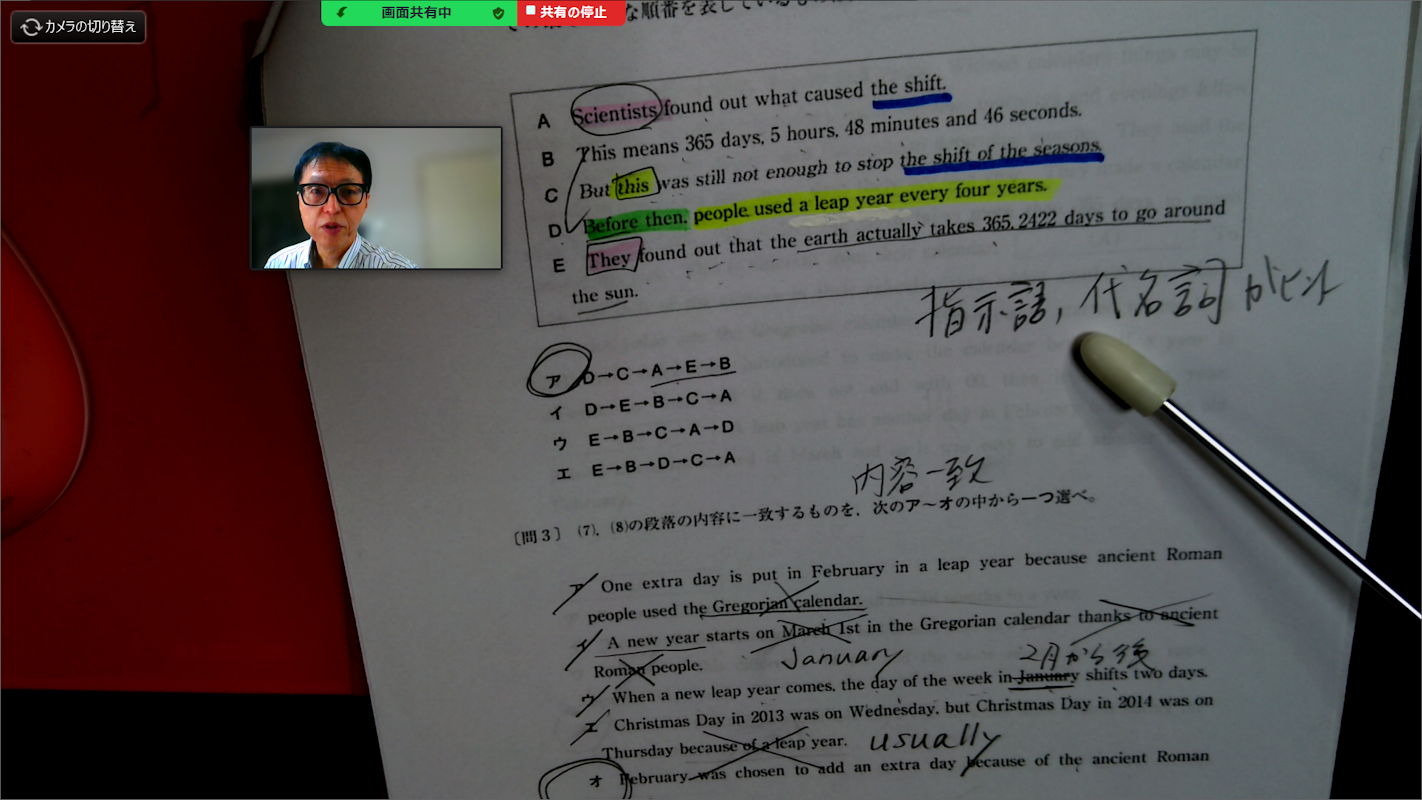 カメラの切り替え
画面共有中
共有の停止
な順番を表している
A Scientists found out what caused the shift.
B This means 365 days, 5 hours, 48 minutes and 46 seconds.
C But this was still not enough to stop the shift of the seasons.
D Before then, people used a leap year every four years.
E They found out that the earth actually takes 365.2422 days to go around
the sun.
指示語,代名詞がヒント
ア D→C→A→E→B
イ D→E→B→C→A
ウ E→B→C→A→D
エ E→B→D→C→A
内容一致
〔問3〕 (7),(8)の段落の内容に一致するものを、次のア〜オの中から一つ選べ。
ア One extra day is put in February in a leap year because ancient Roman
people used the Gregorian calendar.
イ A new year starts on March 1st in the Gregorian calendar thanks to ancient
Roman people.
January
2月から後
ウ When a new leap year comes, the day of the week in January shifts two days.
エ Christmas Day in 2013 was on Wednesday, but Christmas Day in 2014 was on
Thursday because of a leap year.
usually
オ February was chosen to add an extra day because of the ancient Roman